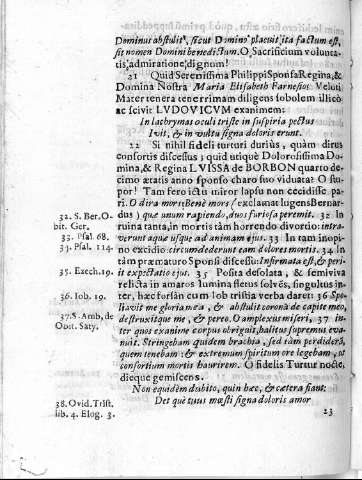 Dominus abstulit, sicut Domino placuit, ita factum est,
sit nomen Domini benedictum. O Sacrificium volunta-
tis, admiratione, dignum!
21 Quid Serenissima Philippi Sponsa Regina, &
Domina Nostra Maria Elisabeth Farnesios? Veluti
Mater tenera tenerrimam diligens sobolem illicò
ac scivit LVDOVICVM exanimem:
In lachrymas oculi triste in suspiria pectus
Ivit, & in vultu signa doloris erunt.
22 Si nihil fideli turturi durius, quàm dirus
consortis discessus; quid utique Dolorosissima Do-
mina, & Regina LVISSA de BORBON quarto de-
cimo ætatis anno sponso charo suo viduata? O stu-
por! Tam fero ictu miror lapsu non cecidisse pa-
ri. O dira mors Benè mors (exclamat lugens Bernar-
32. S. Ber. O-
bit. Ger.
dus) quæ unum rapiendo, duos furiosa peremit. 32 In
ruina tanta, in mortis tàm horrendo divortio: intra-
33. Psal. 68.
verunt aquæ usque ad animam ejus. 33 In tam inopi-
34. Psal. 114.
no excidio circumdederunt eam dolores mortis. 34 In
tàm præmaturo Sponsi discessu: Infirmata est, & peri-
35. Ezech. 19.
it expectatio ejus. 35 Posita desolata, & semiviva
relicta in amaros lumina fletus solvēs, singultus in-
36. Iob. 19.
ter, hæc forsàn cum Iob tristia verba daret: 36 Spo-
liavit me gloria mea, & abstulit coronã de capite meo,
37. S. Amb. de
Obit. Saty.
destruxit que me, & pereo. O amplexus miseri, 37 in-
ter quos exanime corpus obriguit, halitus supremus eva-
nuit. Stringebam quidem brachia, sed tàm perdiderā,
quem tenebam: & extremum spiritum ore legebam, ut
consortium mortis haurirem. O fidelis Turtur nocte,
dieque gemiscens.
Non equidèm dubito, quin hæc, & cætera fiant:
38. Ovid. Trist.
lib. 4. Eleg. 3.
Det que tuus mœsti signa doloris amor
23